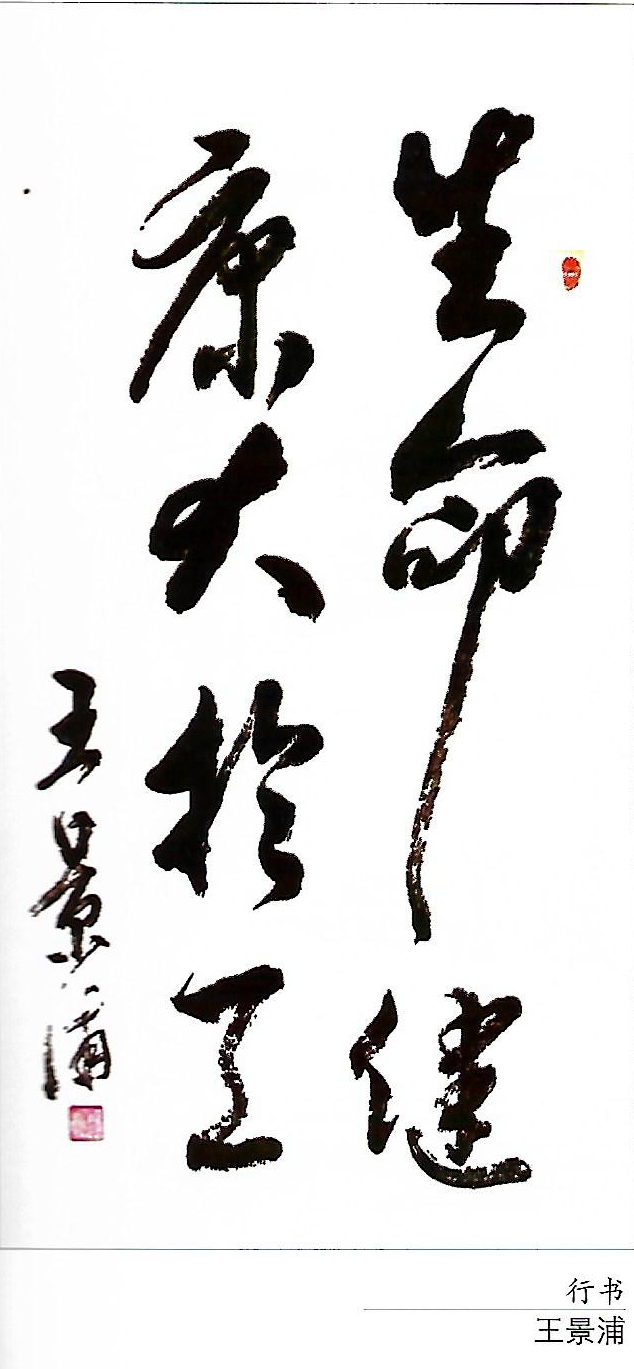 生命健
康大於工
王景浦
行书
王景浦